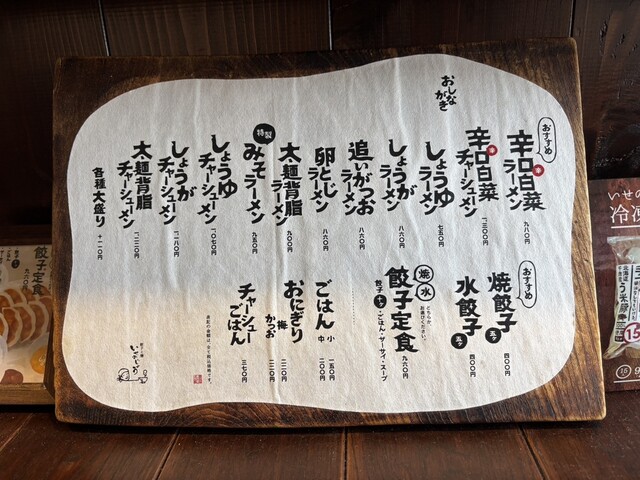 おしながき
おすすめ
辛口白菜ラーメン 九八〇円
辛口白菜チャーシューメン 一三〇〇円
しょうゆラーメン 七五〇円
しょうがラーメン 八六〇円
追いがつおラーメン 八六〇円
卵とじラーメン 八六〇円
太麺背脂ラーメン 九〇〇円
特製 みそラーメン 九五〇円
しょうゆチャーシューメン 一〇七〇円
しょうがチャーシューメン 一一八〇円
太麺背脂チャーシューメン 一二二〇円
各種大盛り +一二〇円
おすすめ
焼餃子 五ケ 四〇〇円
水餃子 五ケ 四〇〇円
焼 水 どちらか、お選びください。
餃子定食 九六〇円
餃子・ごはん・ザーサイ・スープ
ごはん
小 一五〇円
中 二〇〇円
おにぎり
梅 二二〇円
かつお 二二〇円
チャーシューごはん 三七〇円
表記の価格は、全て税込価格です。
餃子定食
いせの
冷凍
北海道